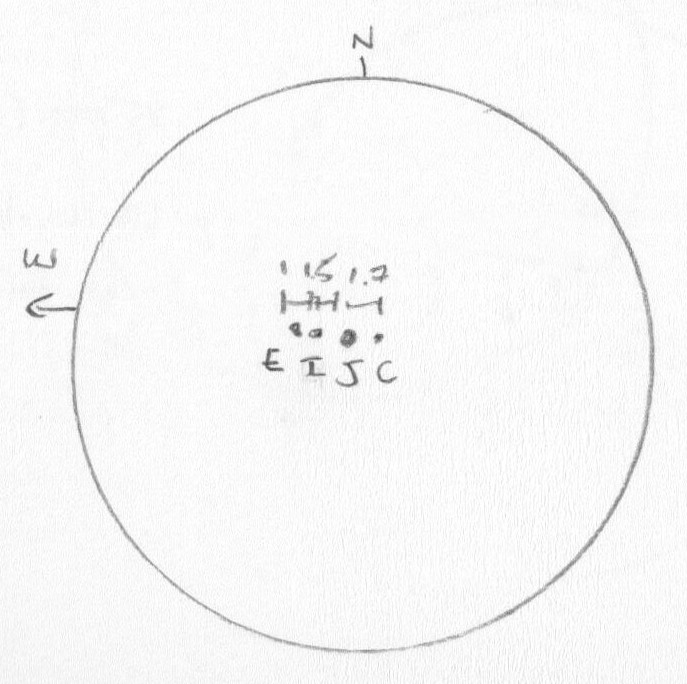 N
E
1 1.5 1.7
E I J C